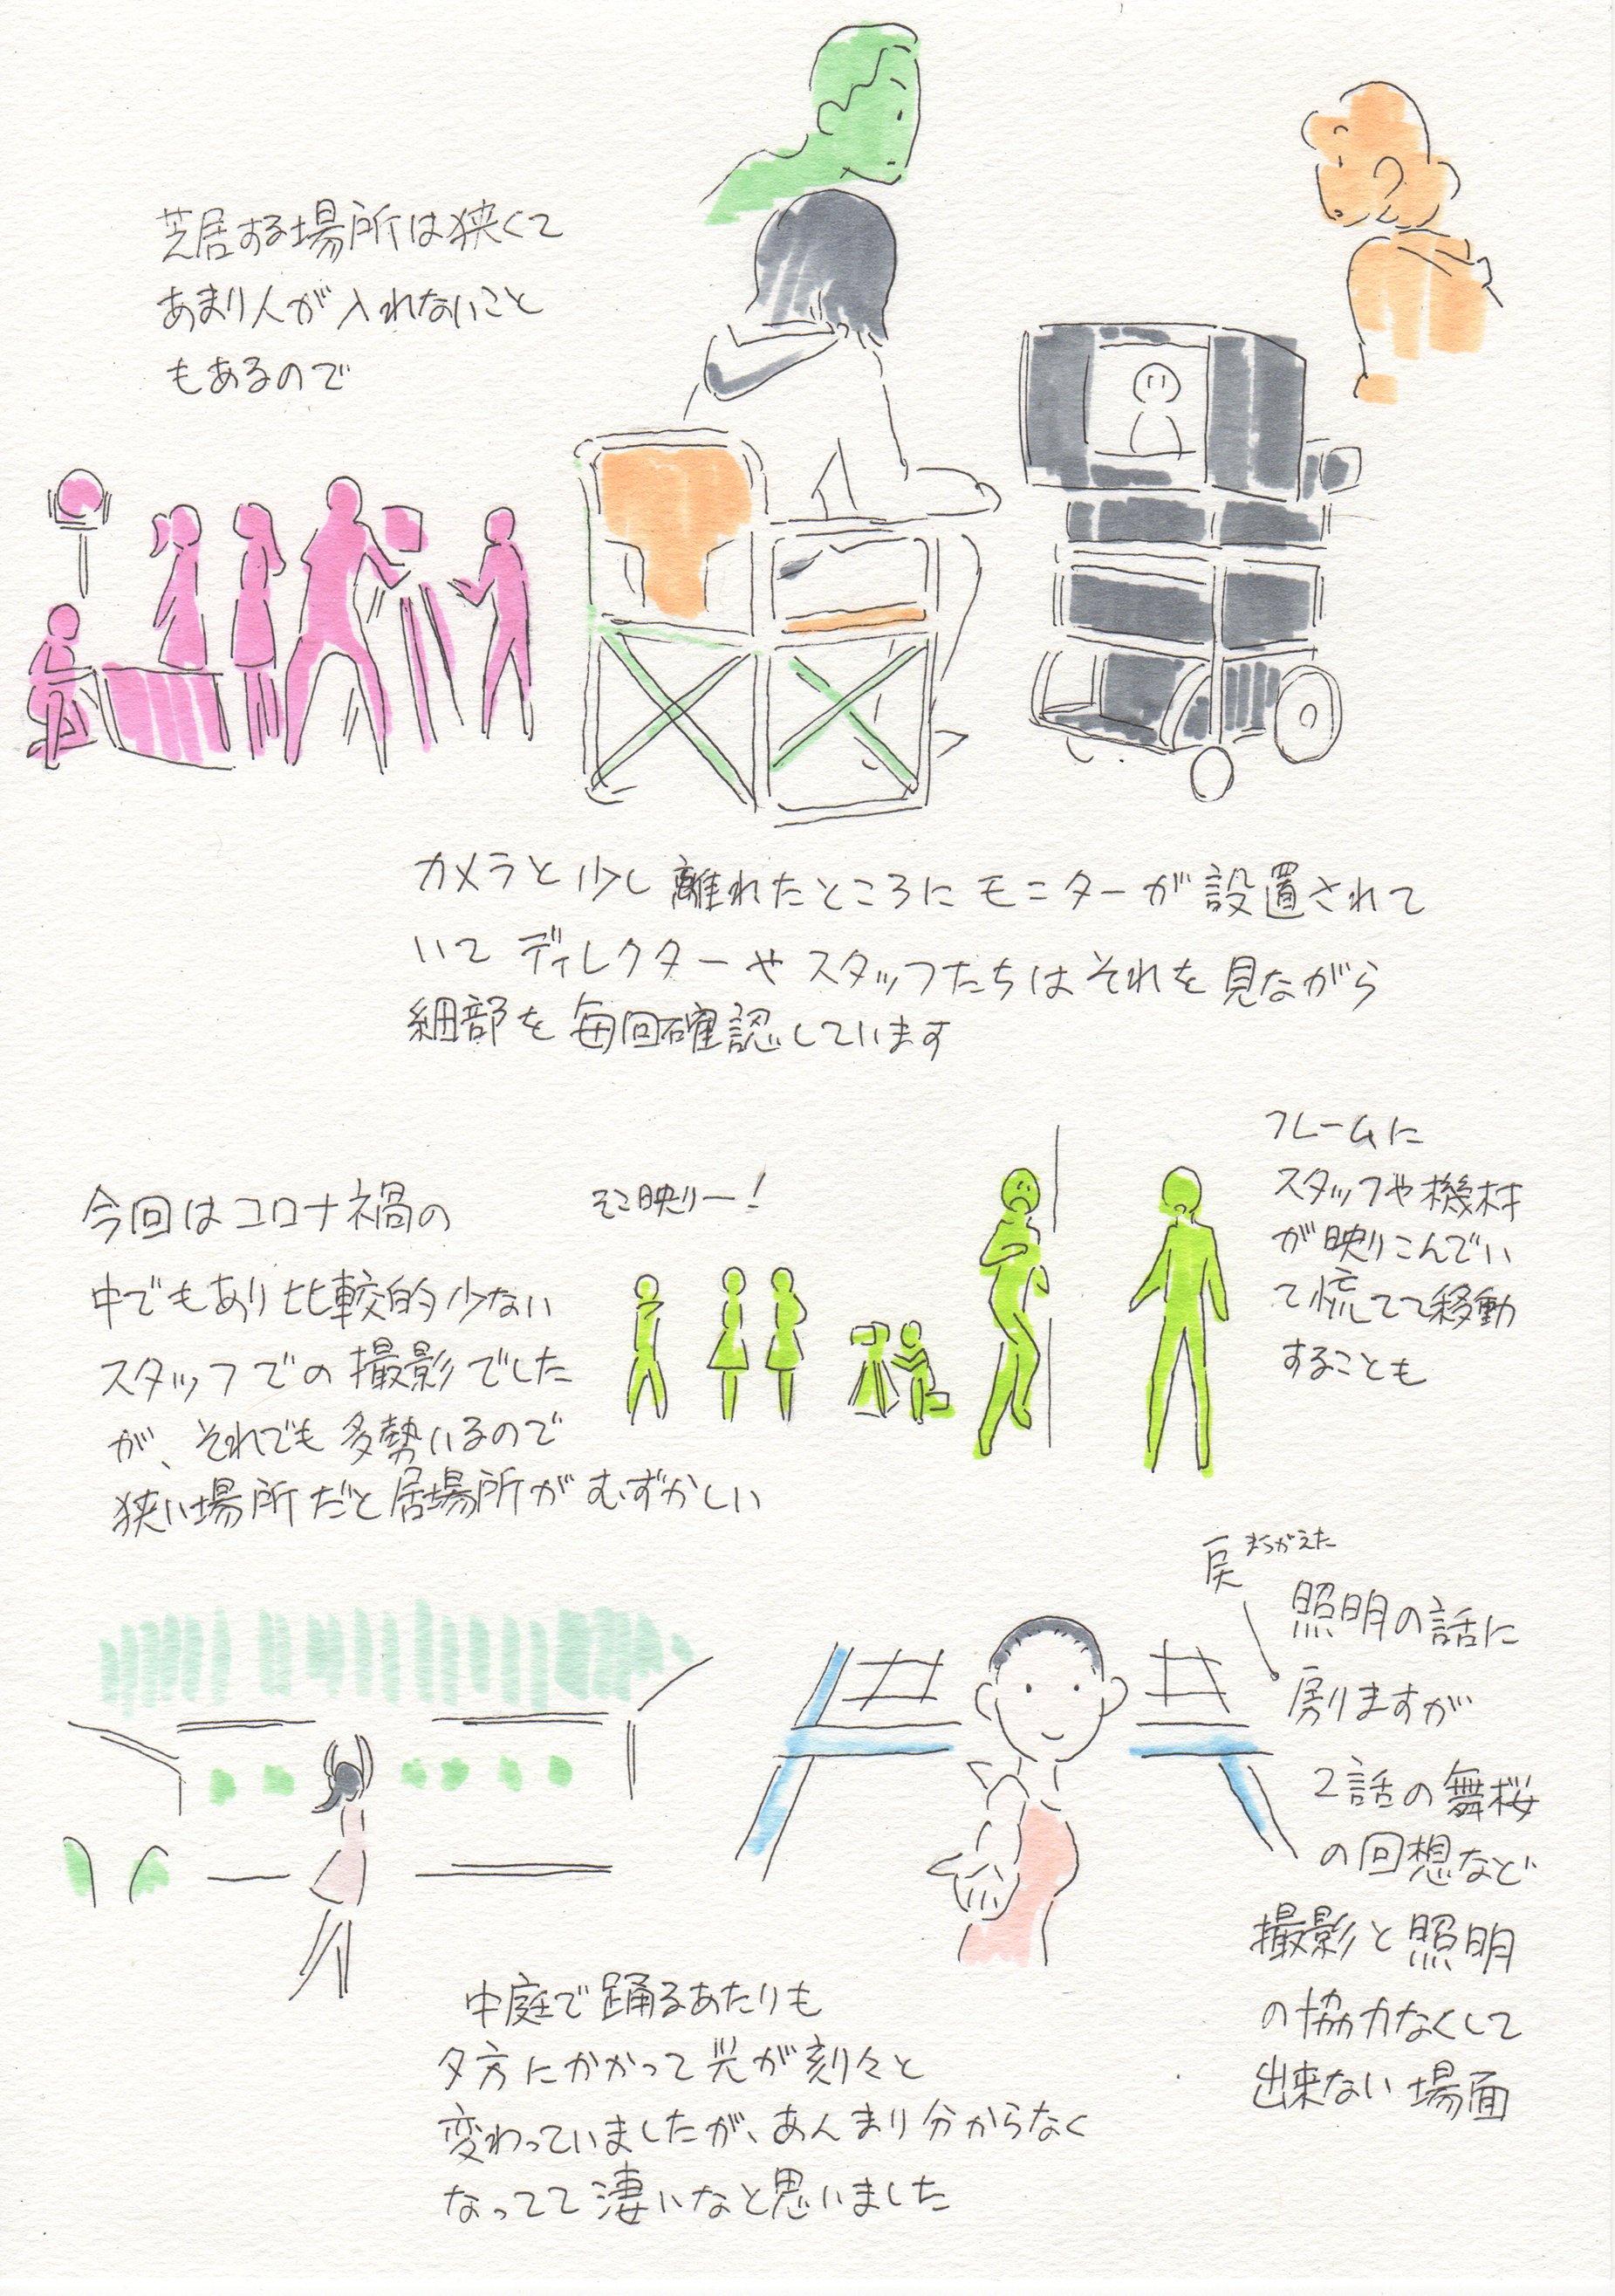 芝居する場所は狭くて
あまり人が入れないこと
もあるので
カメラと少し離れたところにモニターが設置されて
いて ディレクターや スタッフたちはそれを見ながら
細部を毎回確認しています
今回はコロナ禍の
中でもあり比較的少ない
スタッフでの撮影でした
が、それでも多勢いるので
狭い場所だと居場所がむずかしい
そこ映りー！
フレームに
スタッフや機材
が映りこんでい
て慌てて移動
することも
戻 まちがえた
照明の話に
戻りますが
2話の舞桜
の回想など
撮影と照明
の協力なくして
出来ない場面
中庭で踊るあたりも
夕方にかかって光が刻々と
変わっていましたが、あんまり分からなく
なってて凄いなと思いました